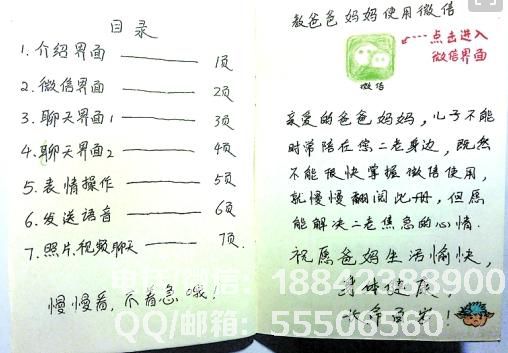 目录
1.介绍界面 1页
2.微信界面 2页
3.聊天界面1 3页
4.聊天界面2 4页
5.表情操作 5页
6.发送语音 6页
7.照片.视频聊天 7页.
慢慢看,不着急哦!
教爸爸妈妈使用微信
点击进入
微信界面
微信
亲爱的爸爸妈妈,儿子不能
时常陪在您二老身边,既然
不能很快掌握微信使用,
就慢慢翻阅此册,但愿
能解决二老焦急的心情.
祝愿爸妈生活愉快,
身体健康,
18842388900
QQ/邮箱: 55506560